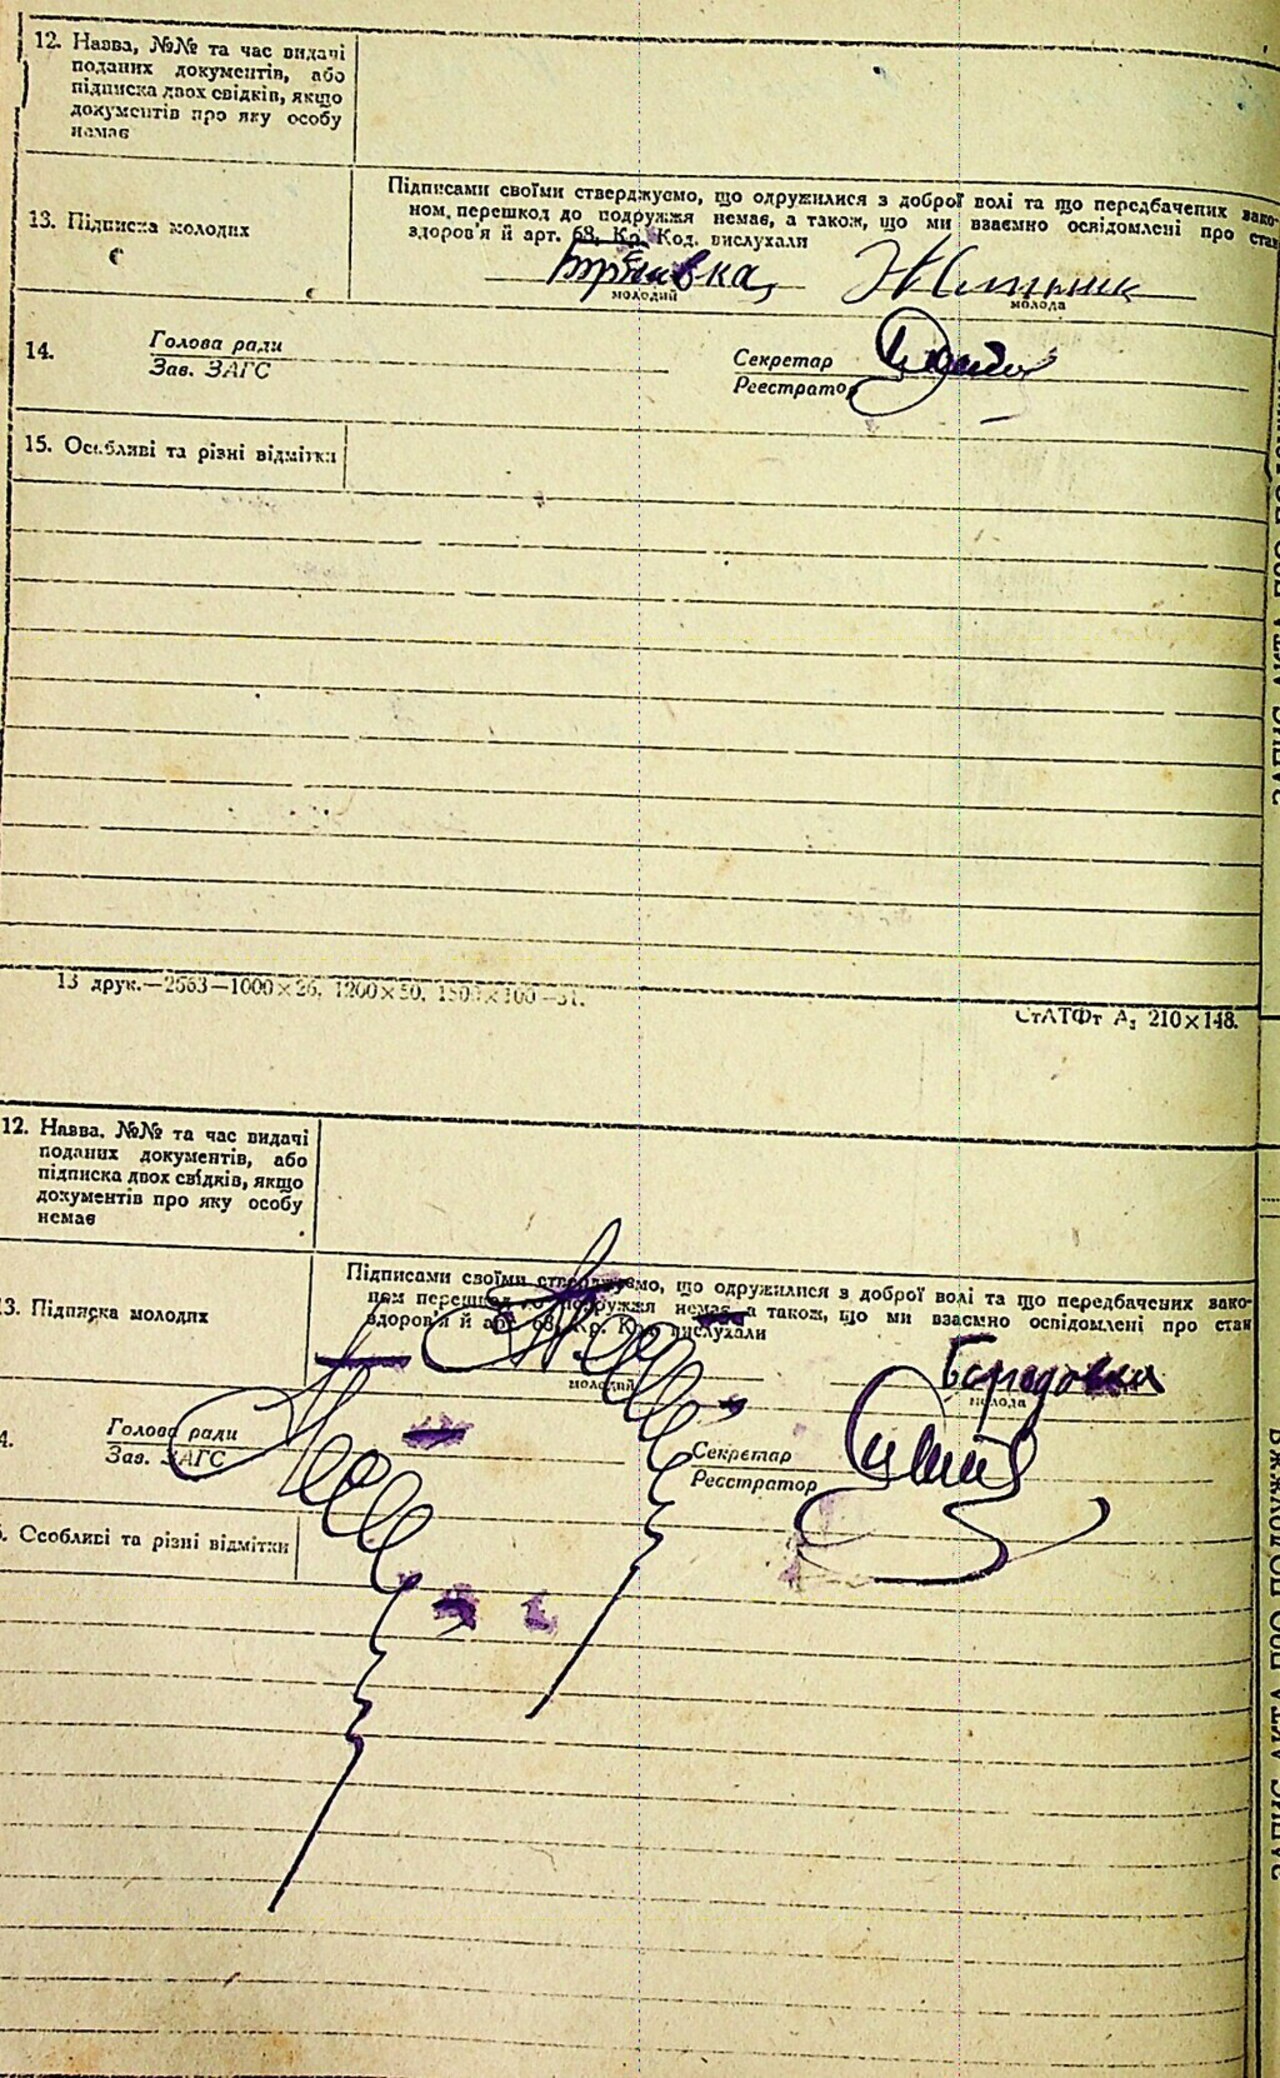 12. Назва, №№ та час видачі
поданих документів, або
підписка двох свідків, якщо
документів про яку особу
немає
Підписами своїми стверджуємо, що одружилися з доброї волі та що передбачених зако-
ном перешкод до подружжя немає, а також, що ми взаємно освідомлені про стан
здоров'я й арт. 68, Кр. Код. вислухали
13. Підписка молодих
молодий
молода
14. Голова ради
Зав. ЗАГС
Секретар
Реєстратор
15. Особливі та різні відмітки
13 друк.—2563—1000×26, 1200×50, 1500×100—31.
СтАТФт А₅ 210×148.
12. Назва, №№ та час видачі
поданих документів, або
підписка двох свідків, якщо
документів про яку особу
немає
Підписами своїми стверджуємо, що одружилися з доброї волі та що передбачених зако-
ном перешкод до подружжя немає, а також, що ми взаємно освідомлені про стан
здоров'я й арт. 68, Кр. Код. вислухали
3. Підписка молодих
Бородовка
молодий
молода
4. Голова ради
Зав. ЗАГС
Секретар
Реєстратор
5. Особливі та різні відмітки